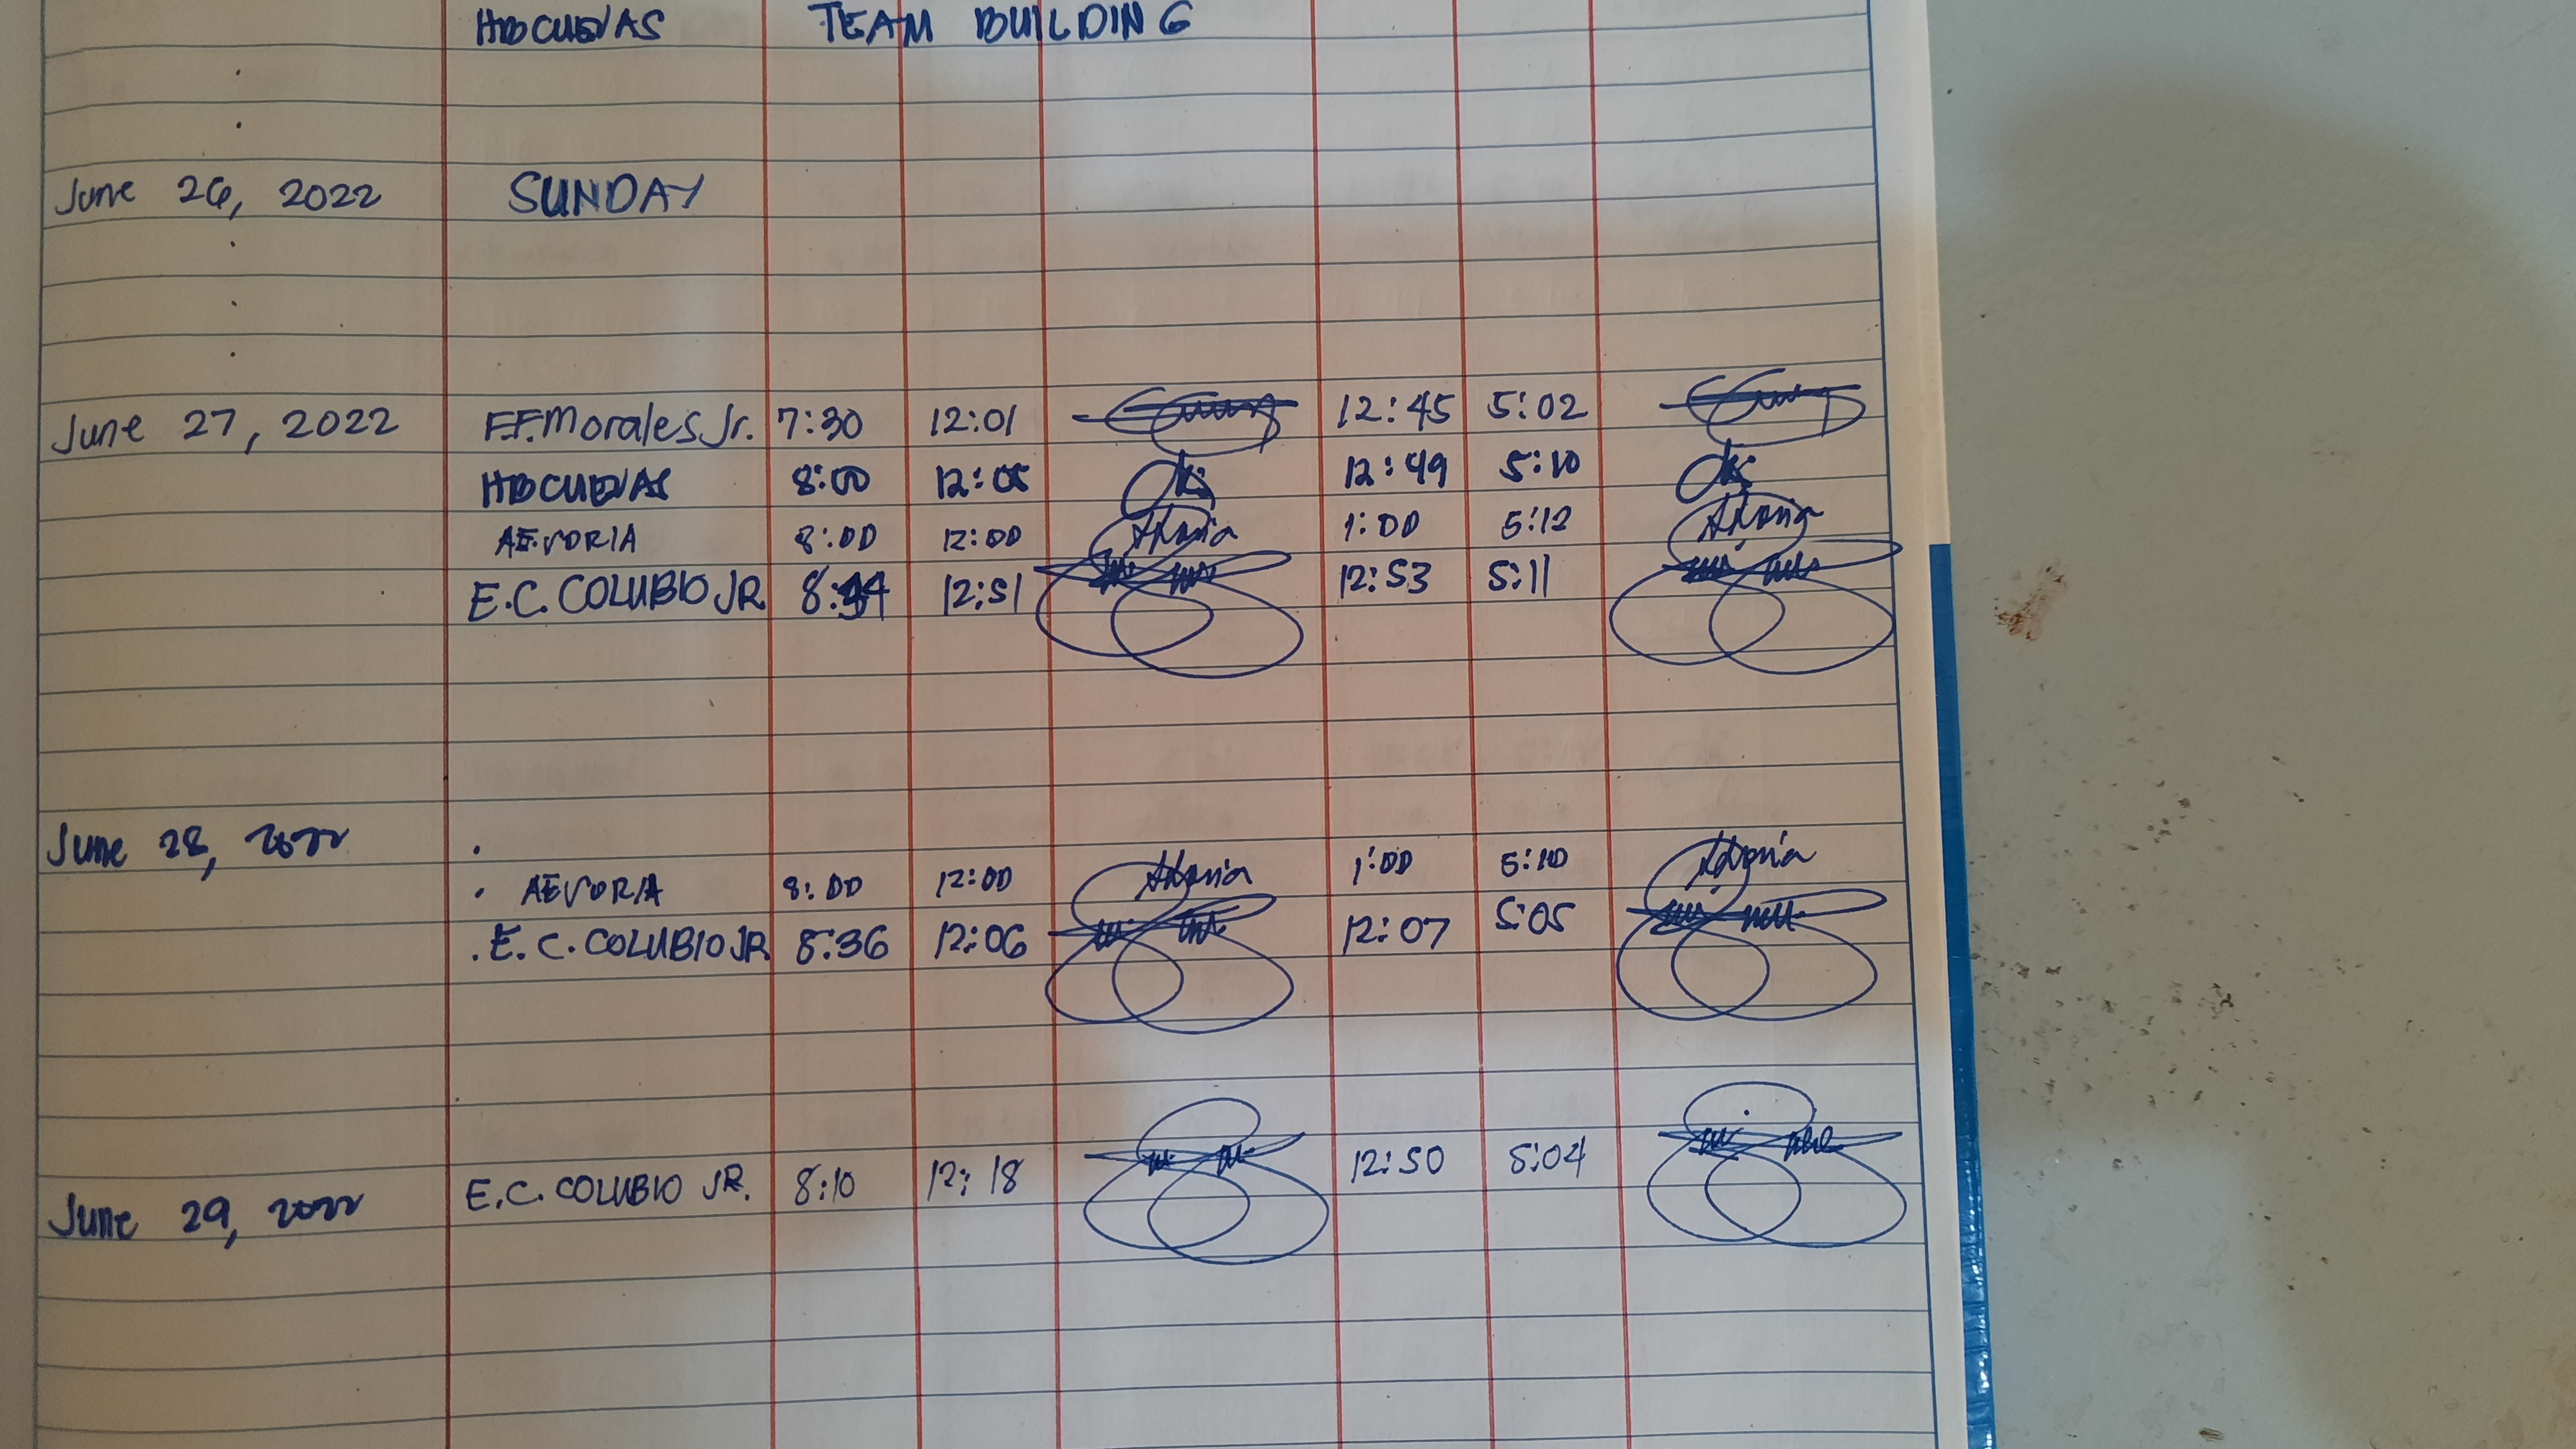 HBCUEVAS TEAM BUILDING
June 26, 2022 SUNDAY
June 27, 2022 F.F. Morales Jr. 7:30 12:01 12:45 5:02
HBCUEVAS 8:00 12:05 12:49 5:10
AEVORIA 8:00 12:00 1:00 5:12
E.C. COLUBIO JR 12:51 12:53 5:11
June 28, 2022
AEVORIA 8:00 12:00 1:00 5:10
E. C. COLUBIO JR. 8:36 12:06 12:07 5:05
June 29, 2022 E.C. COLUBIO JR. 8:10 12:18 12:50 5:04